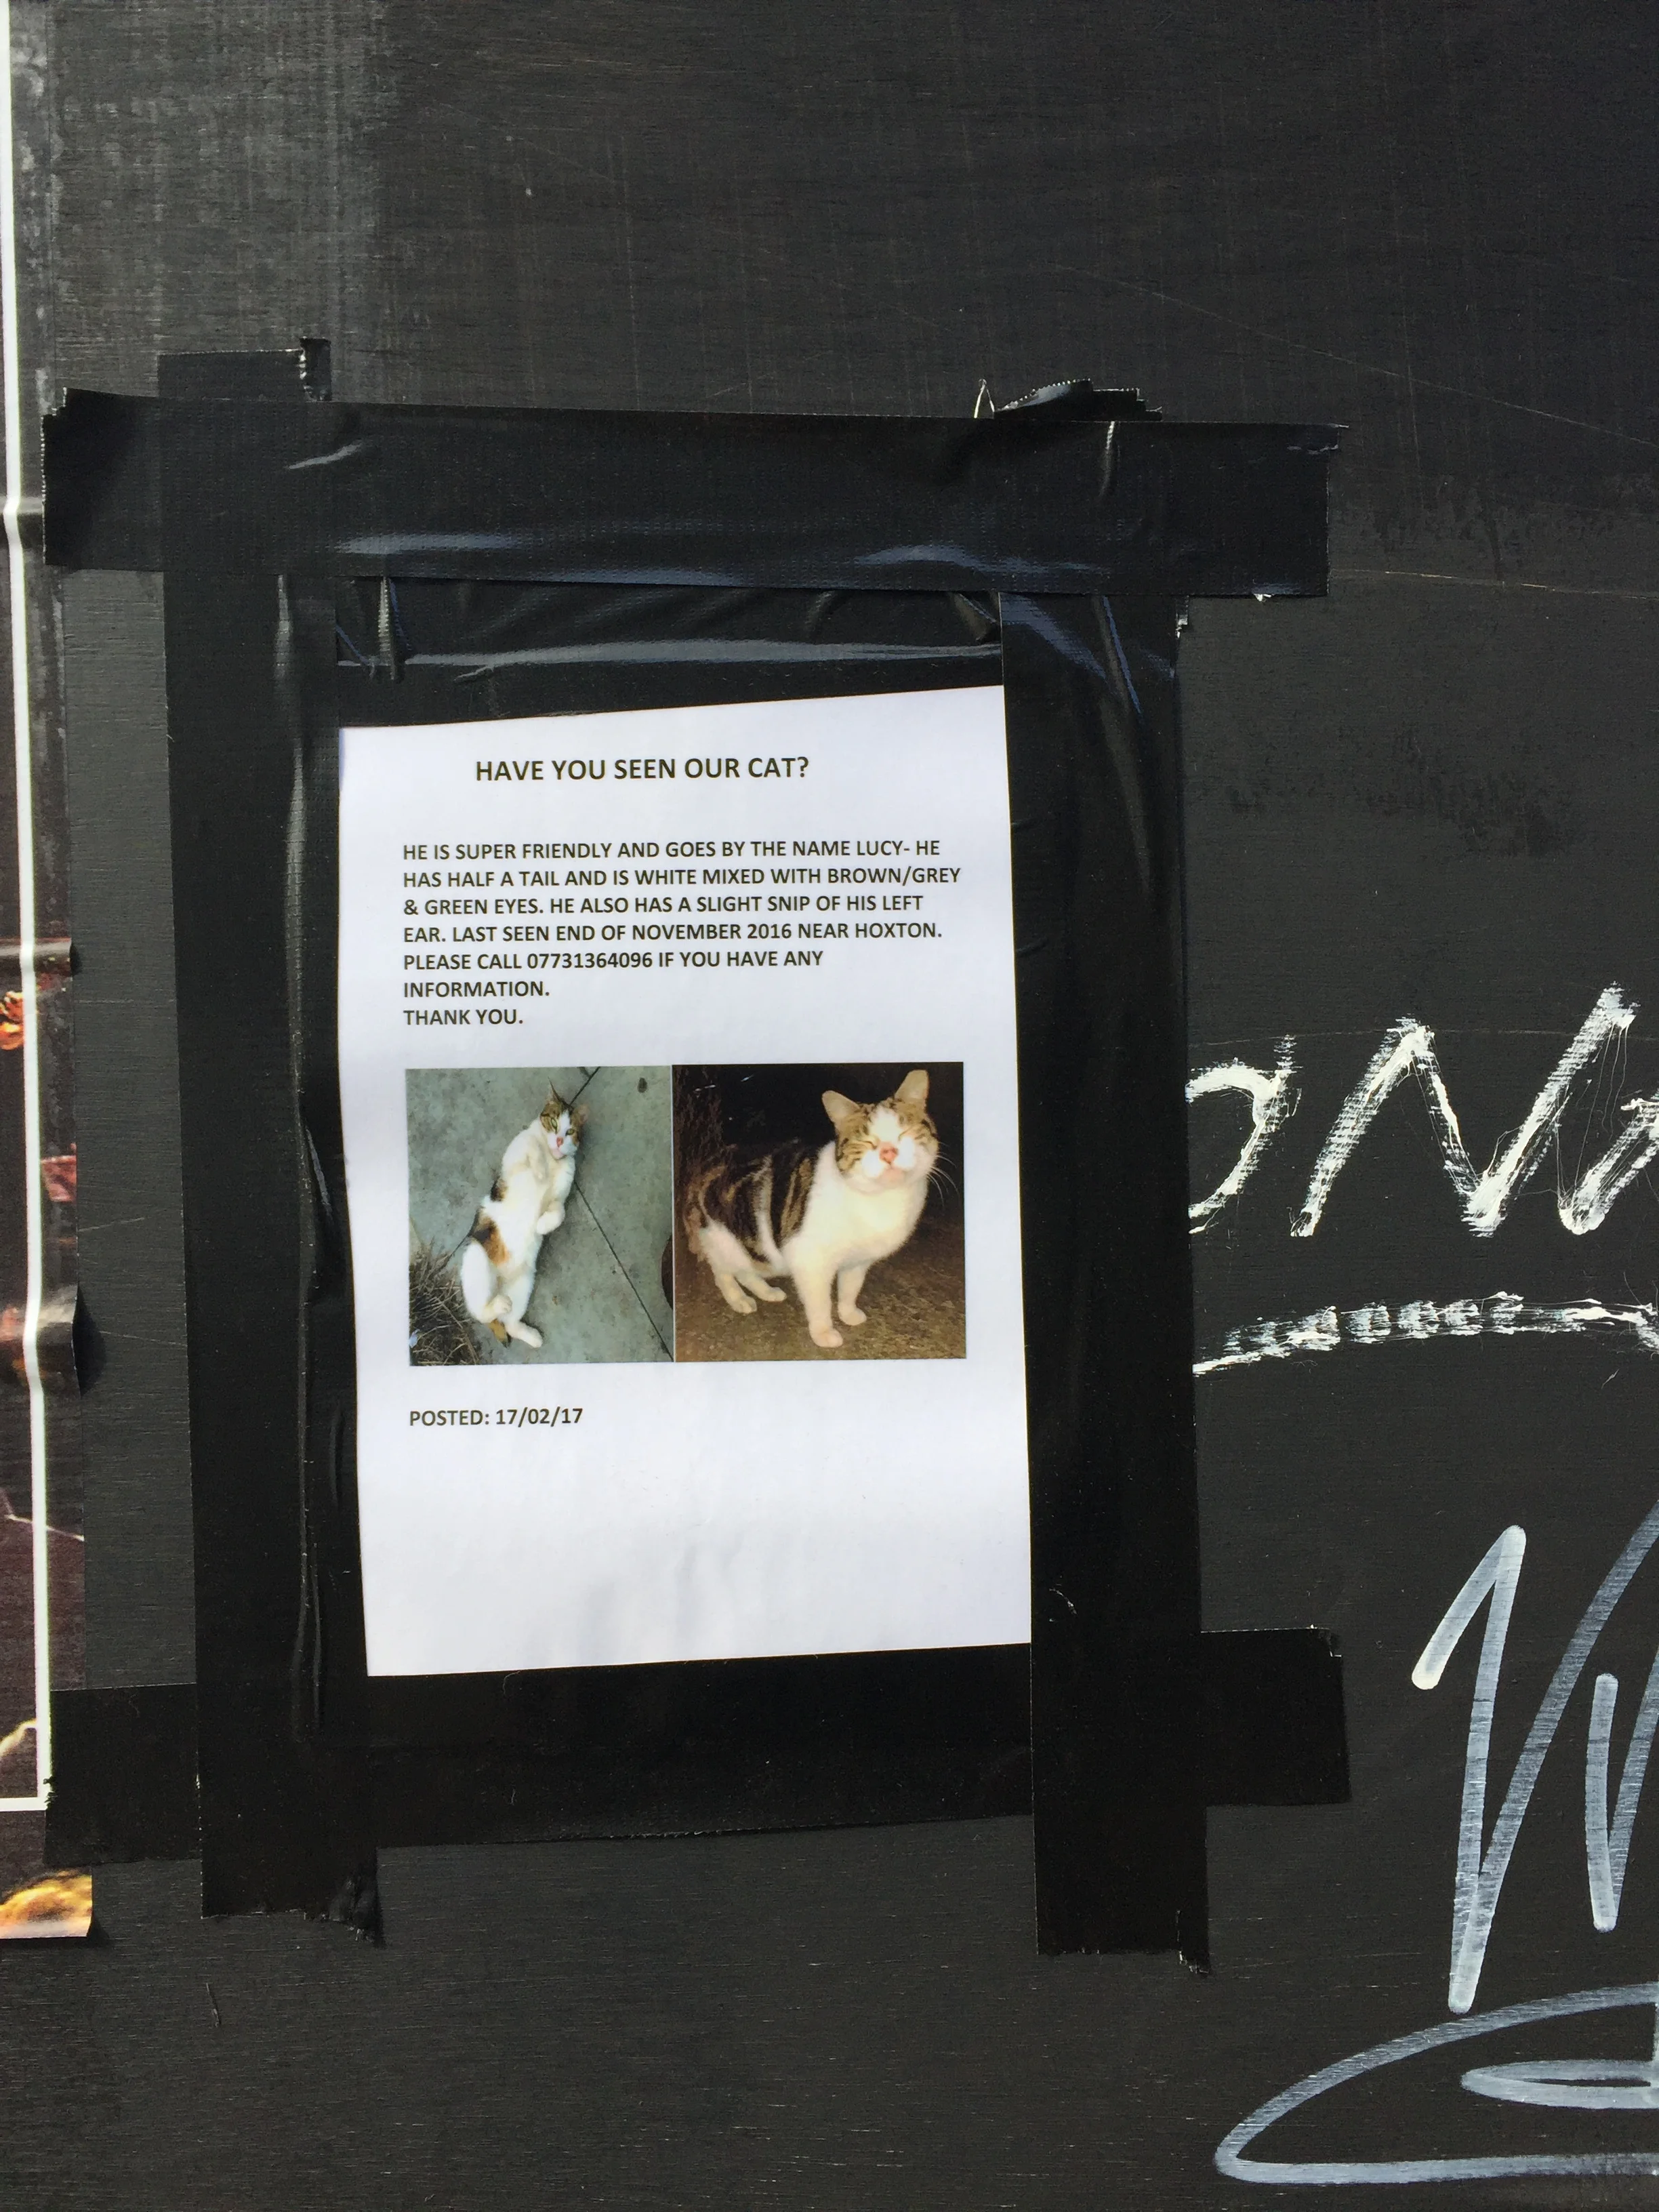 HAVE YOU SEEN OUR CAT?
HE IS SUPER FRIENDLY AND GOES BY THE NAME LUCY- HE
HAS HALF A TAIL AND IS WHITE MIXED WITH BROWN/GREY
& GREEN EYES. HE ALSO HAS A SLIGHT SNIP OF HIS LEFT
EAR. LAST SEEN END OF NOVEMBER 2016 NEAR HOXTON.
PLEASE CALL 07731364096 IF YOU HAVE ANY
INFORMATION.
THANK YOU.
POSTED: 17/02/17